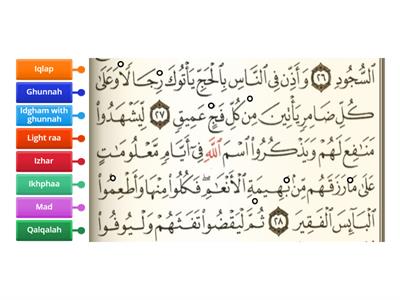 Iqlap
Ghunnah
Idgham with ghunnah
Light raa
Izhar
Ikhphaa
Mad
Qalqalah
ٱلسُّجُودِ ٢٦ وَأَذِّن فِى ٱلنَّاسِ بِٱلْحَجِّ يَأْتُوكَ رِجَالًا وَعَلَىٰ
كُلِّ ضَامِرٍ يَأْتِينَ مِن كُلِّ فَجٍّ عَمِيقٍ ٢٧ لِّيَشْهَدُوا۟
مَنَٰفِعَ لَهُمْ وَيَذْكُرُوا۟ ٱسْمَ ٱللَّهِ فِىٓ أَيَّامٍ مَّعْلُومَٰتٍ
عَلَىٰ مَا رَزَقَهُم مِّنۢ بَهِيمَةِ ٱلْأَنْعَٰمِ ۖ فَكُلُوا۟ مِنْهَا وَأَطْعِمُوا۟
ٱلْبَآئِسَ ٱلْفَقِيرَ ٢٨ ثُمَّ لْيَقْضُوا۟ تَفَثَهُمْ وَلْيُوفُوا۟